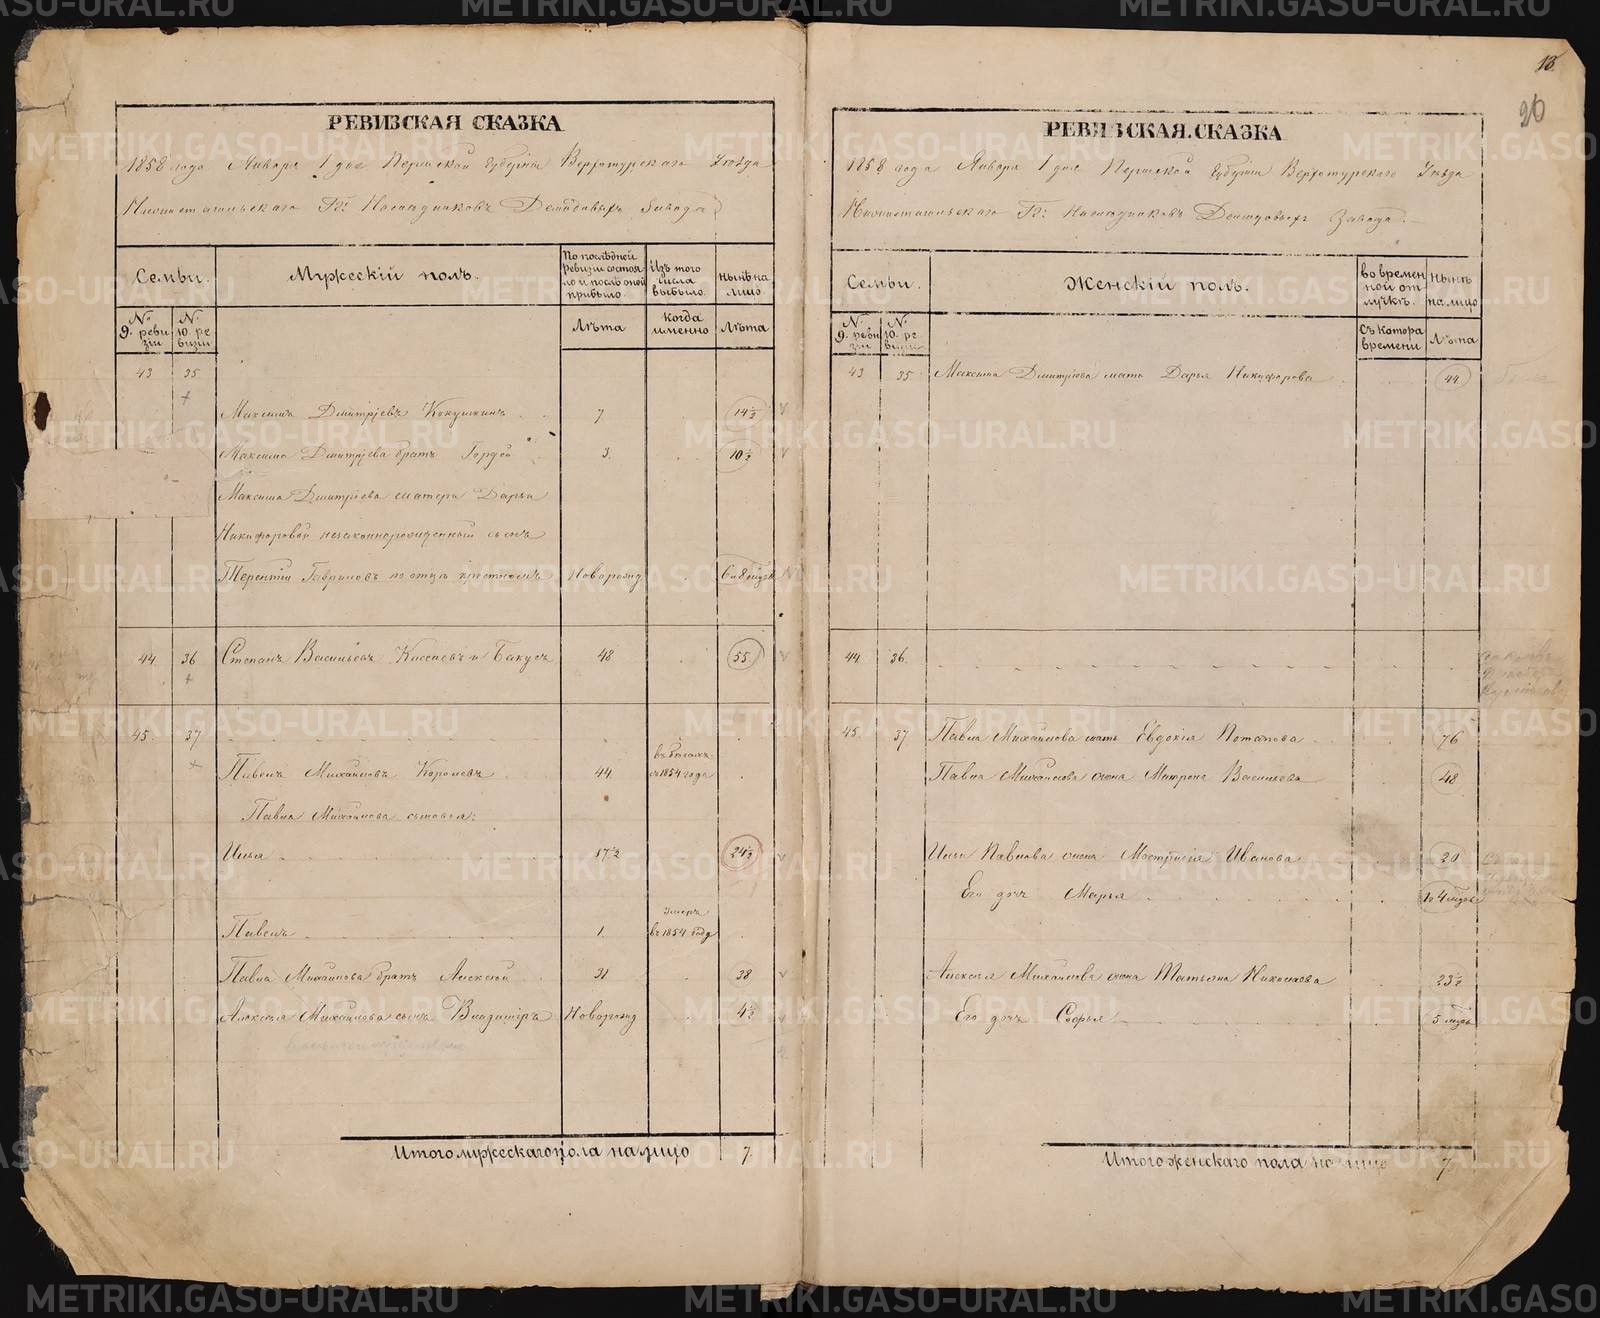 18
20
РЕВИЗСКАЯ СКАЗКА
1858 года Января 1 дня Пермской Губерніи Верхотурскаго Уѣзда
Нижнетагильскаго Гг. Наслѣдниковъ Демидовыхъ Завода
Семьи.
Мужескій полъ.
По послѣдней ревизіи состояло и послѣ оной прибыло.
Изъ того числа выбыло.
нынѣ на лицо.
№ 9. ревизіи
№ 10. ревизіи
Лѣта
когда именно
Лѣта
43 35
Максимъ Дмитріевъ Кокушкинъ 7 14½
Максима Дмитріева братъ Гордей 3. 10½
Максима Дмитріева матери Дарьи
Никифоровой незаконнорожденный сынъ
Терентій Гавриловъ по отцѣ крестномъ Новорожд 6 и 8 мцов
44 36 Степанъ Васильевъ 48 55.
45. 37
Павелъ Михайловъ Королевъ 44 въ бѣгахъ съ 1854 года
Павла Михайлова сыновья:
Илья 17½ 24½
Павелъ 1. Умеръ въ 1854 году
Павла Михайлова братъ Алексѣй 31 38
Алексѣя Михайлова сынъ Владиміръ Новорожд 4½
Итого мужескаго пола на лицо 7
РЕВИЗСКАЯ СКАЗКА
1858 года Января 1 дня Пермской Губерніи Верхотурскаго Уѣзда
Нижнетагильскаго Гг. Наслѣдниковъ Демидовыхъ Завода.
Семьи.
Женскій полъ.
во временной отлучкѣ.
нынѣ на лицо
№ 9. ревизіи
№ 10. ревизіи
съ котора времени
Лѣта
43 35. Максима Дмитріева мать Дарья Никифорова 44
44 36.
45 37 Павла Михайлова мать Евдокія Потапова 76
Павла Михайлова жена Матрена Васильева 48
Ильи Павлова жена Иванова 20
Его дочь Марья 4 мцов
Алексѣя Михайлова жена Татьяна Николаева 23½
Его дочь Софья 5 мцов
Итого женскаго пола на лицо 7
METRIKI.GASO-URAL.RU